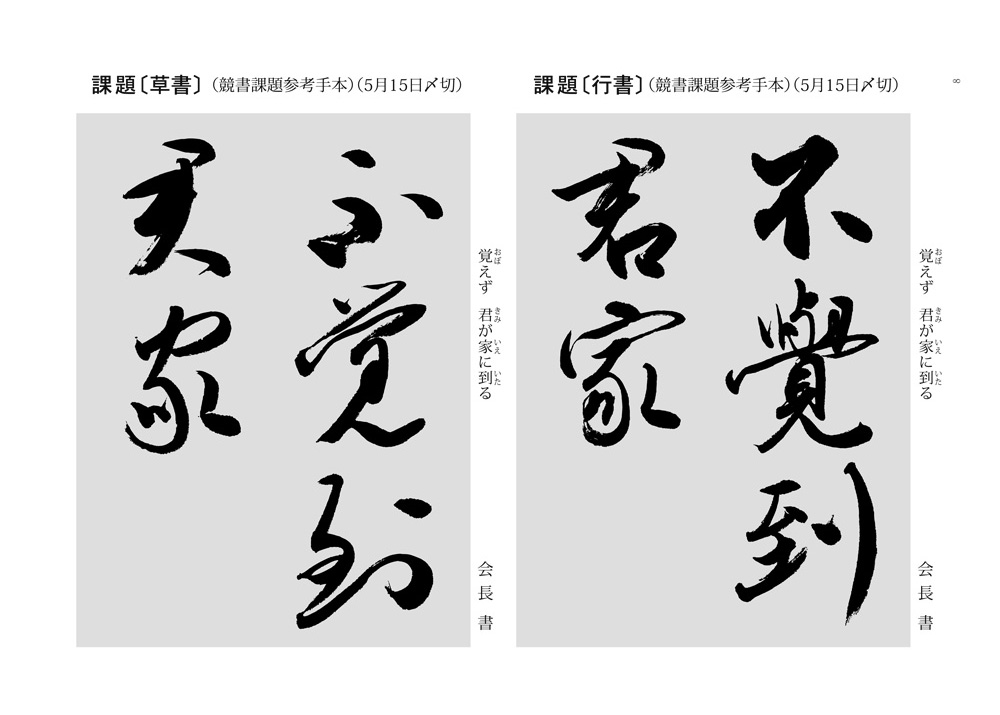 8
課題〔行書〕（競書課題参考手本）（5月15日〆切）
不覺到
君家
覚えず　君が家に到る
おぼ　きみ　いえ　いた
会長　書
課題〔草書〕（競書課題参考手本）（5月15日〆切）
不覺到
君家
覚えず　君が家に到る
おぼ　きみ　いえ　いた
会長　書